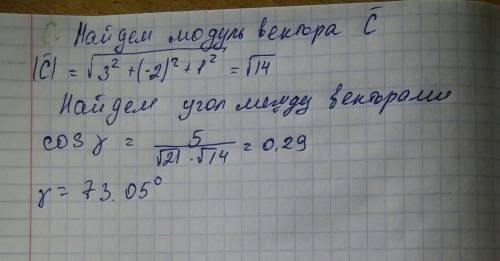 Найдем модуль вектора c̄
|c̄| = √3² + (-2)² + 1² = √14
Найдем угол между векторами
cos γ = 5 / √21 · √14 = 0,29
γ = 73.05°